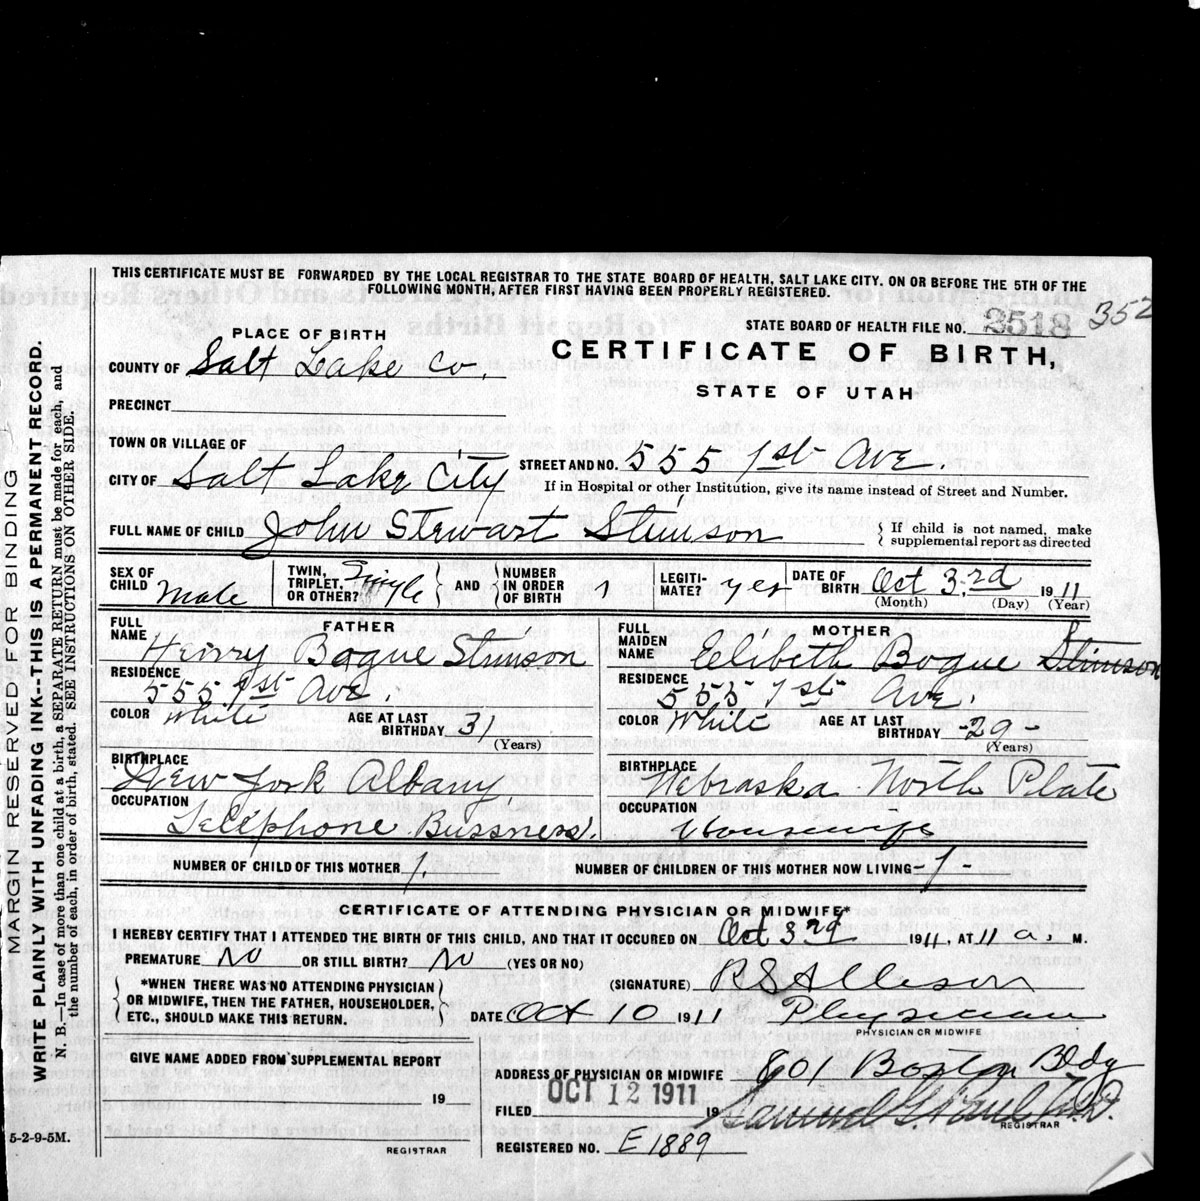 THIS CERTIFICATE MUST BE FORWARDED BY THE LOCAL REGISTRAR TO THE STATE BOARD OF HEALTH, SALT LAKE CITY. ON OR BEFORE THE 5TH OF THE
FOLLOWING MONTH, AFTER FIRST HAVING BEEN PROPERLY REGISTERED.
352
STATE BOARD OF HEALTH FILE NO. 2518
PLACE OF BIRTH
CERTIFICATE OF BIRTH,
COUNTY OF Salt Lake Co.
STATE OF UTAH
PRECINCT
TOWN OR VILLAGE OF
CITY OF Salt Lake City
STREET AND NO. 555 1st Ave.
If in Hospital or other Institution, give its name instead of Street and Number.
FULL NAME OF CHILD John Stewart Stimson
If child is not named, make
supplemental report as directed
SEX OF CHILD Male
TWIN, TRIPLET, OR OTHER? Single
AND
NUMBER IN ORDER OF BIRTH 1
LEGITI-MATE? yes
DATE OF BIRTH Oct 3,rd 1911
(Month) (Day) (Year)
FATHER
FULL NAME Henry Bogue Stimson
RESIDENCE 555 1st Ave.
COLOR White
AGE AT LAST BIRTHDAY 31
(Years)
BIRTHPLACE New York Albany
OCCUPATION Telephone Bussness.
MOTHER
FULL MAIDEN NAME Elibeth Bogue Stimson
RESIDENCE 555 1st Ave.
COLOR White
AGE AT LAST BIRTHDAY -29-
(Years)
BIRTHPLACE Nebraska North Plate
OCCUPATION Housewife
NUMBER OF CHILD OF THIS MOTHER 1.
NUMBER OF CHILDREN OF THIS MOTHER NOW LIVING -1-
CERTIFICATE OF ATTENDING PHYSICIAN OR MIDWIFE*
I HEREBY CERTIFY THAT I ATTENDED THE BIRTH OF THIS CHILD, AND THAT IT OCCURED ON Oct 3rd 1911, AT 11 a. M.
PREMATURE No OR STILL BIRTH? No (YES OR NO)
*WHEN THERE WAS NO ATTENDING PHYSICIAN
OR MIDWIFE, THEN THE FATHER, HOUSEHOLDER,
ETC., SHOULD MAKE THIS RETURN.
(SIGNATURE) R S Allison
DATE Oct 10 1911 Physician
PHYSICIAN OR MIDWIFE
GIVE NAME ADDED FROM SUPPLEMENTAL REPORT
19
REGISTRAR
ADDRESS OF PHYSICIAN OR MIDWIFE 801 Boston Bldg
FILED OCT 12 1911 19
REGISTRAR
REGISTERED NO. E1889
5-2-9-5M.
MARGIN RESERVED FOR BINDING
WRITE PLAINLY WITH UNFADING INK--THIS IS A PERMANENT RECORD.
N. B.—In case of more than one child at a birth, a SEPARATE RETURN must be made for each, and
the number of each, in order of birth, stated. SEE INSTRUCTIONS ON OTHER SIDE.